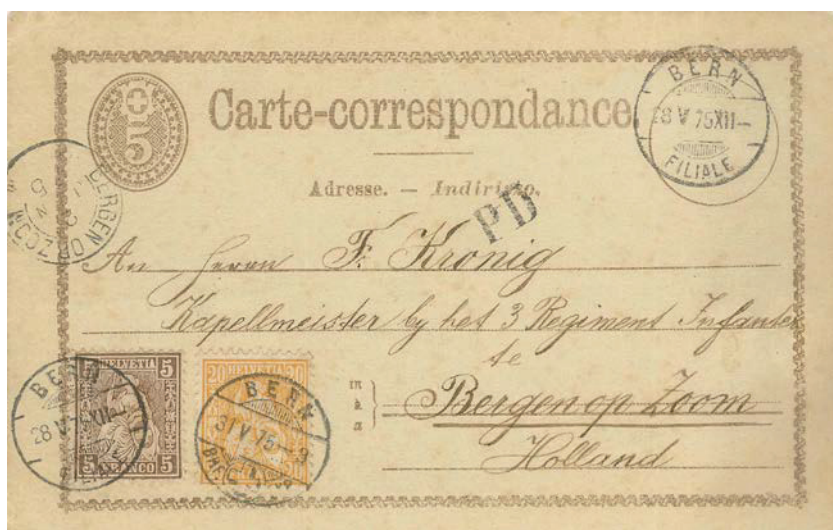 5
Carte-correspondance.
BERN
28 V 75 XII—
FILIALE
Adresse. — Indirizzo.
PD
BERGEN OP ZOOM
An Herrn F. Kronig
Kapellmeister by het 3 Regiment Infanter
te
in a
Bergen op Zoom
Holland
HELVETIA
5 5
5 FRANCO 5
BERN
28 V 75 XII—
20 HELVETIA 20
BERN
31 V 75